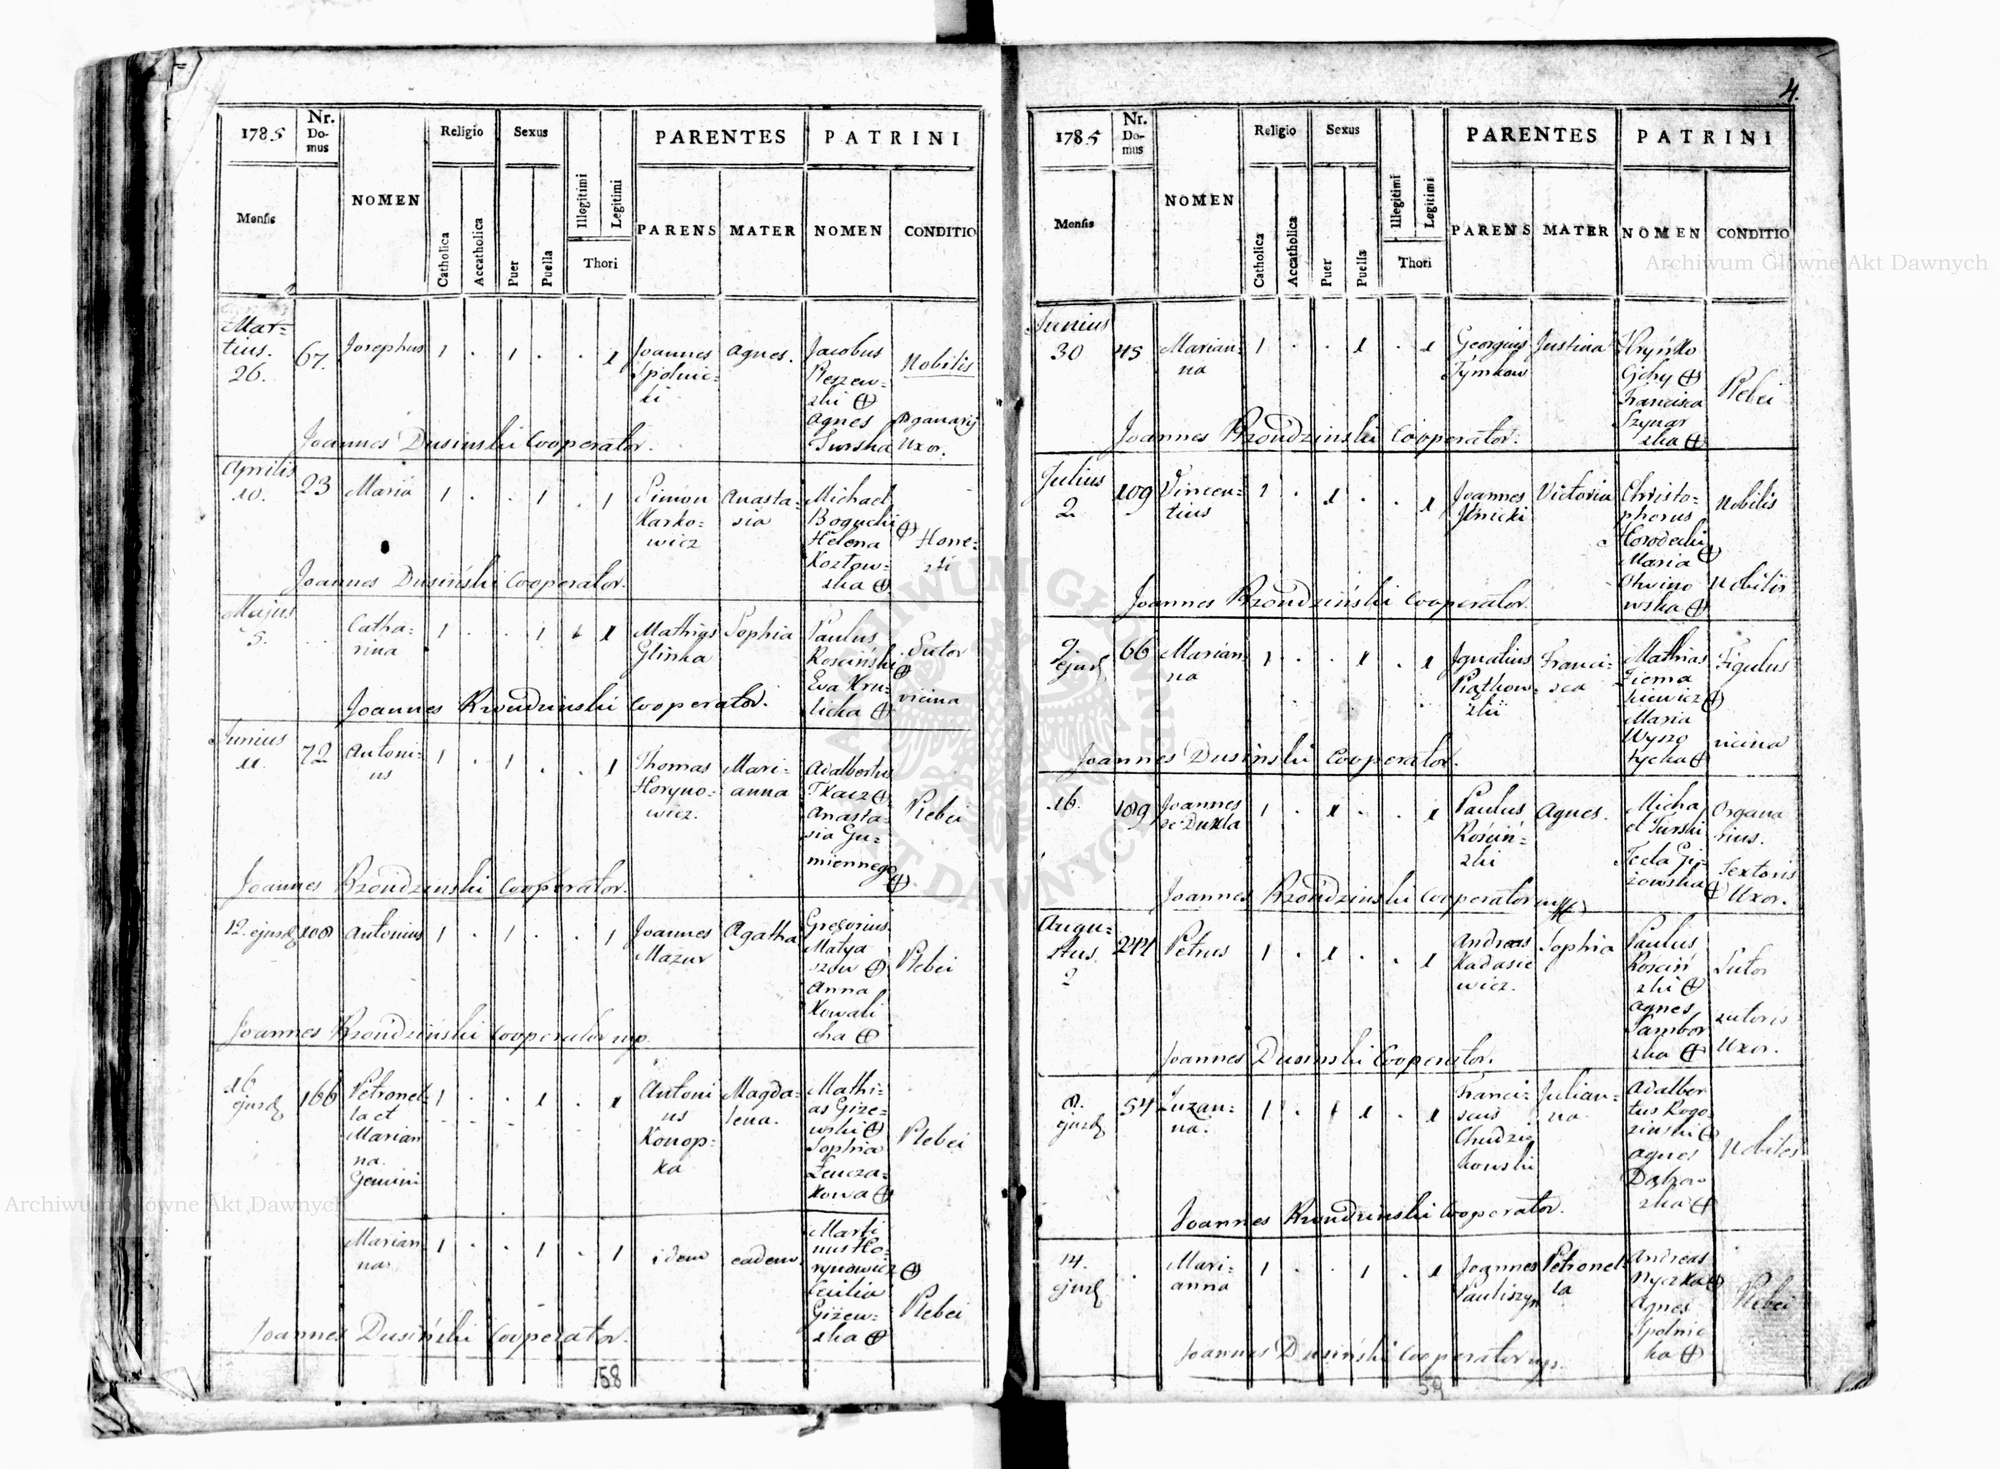 4.
1785 Nr. Domus NOMEN Religio Sexus PARENTES PATRINI
Mensis Catholica Accatholica Puer Puella Illegitimi Legitimi Thori PARENS MATER NOMEN CONDITIO
Martius. 26. 67. Josephus 1 . 1 . . 1 Joannes Spolnicki Agnes. Jacobus Reszewski ⊕ Nobilis
Agnes Turska Organarij Uxor.
Joannes Dusinski Cooperator.
Aprilis 10. 23 Maria 1 . . 1 . 1 Simon Karkowicz Anastasia Michael Bogucki ⊕ Helena Kozłowska ⊕ Honesti
Joannes Dusiński Cooperator.
Majus 5. . Catharina 1 . . 1 . 1 Mathias Glinka Sophia Paulus Rościński ⊕ Sutor
Eva Krulicka ⊕ vicina
Joannes Rzondzinski Cooperator.
Junius 11. 72 Antonius 1 . 1 . . 1 Thomas Horynowicz. Marianna Adalbertus Tkacz ⊕ Anastasia Gumiennego ⊕ Plebei
Joannes Rzondzinski Cooperator.
12. ejusd 108 Antonius 1 . 1 . . 1 Joannes Mazur Agatha Gregorius Matyaszow ⊕ Anna Kowalicha ⊕ Plebei
Joannes Rzondziński Cooperator mp.
16 ejusd 166 Petronella et Marianna. Gemini 1 . . 1 . 1 Antonius Konopka Magdalena. Mathias Gizewski ⊕ Sophia Zenczakowa ⊕ Plebei
Marianna 1 . . 1 . 1 idem eadem Martinus Horynowicz ⊕ Cecilia Giżewska ⊕ Plebei
Joannes Dusiński Cooperator.
58
1785 Nr. Domus NOMEN Religio Sexus PARENTES PATRINI
Mensis Catholica Accatholica Puer Puella Illegitimi Legitimi Thori PARENS MATER NOMEN CONDITIO
Junius 30 45 Marianna 1 . . 1 . 1 Georgius Tymkow Justina Hryńko Cichy ⊕ Francisca ⊕ Plebei
Joannes Rzondzinski Cooperator.
Julius 2. 109 Vincentius 1 . 1 . . 1 Joannes Victoria Christophorus Horodecki ⊕ Nobilis
Maria ⊕ Nobilis
Joannes Rzondziński Cooperator.
9 ejusd 66 Marianna 1 . . 1 . 1 Ignatius Piątkowski Francisca Mathias Ziemakiewicz ⊕ Figulus
Maria Wyszotycka ⊕ vicina
Joannes Dusinski Cooperator.
16. 109 Joannes de Dukla 1 . 1 . . 1 Paulus Rościński Agnes. Michael Turski Organarius.
Tecla Giżowska ⊕ Textoris Uxor.
Joannes Rzondzinski Cooperator mp
Augustus. 2 244 Petrus 1 . 1 . . 1 Andreas Kadasiewicz. Sophia Paulus Rościński ⊕ Sutor
Agnes Samborska ⊕ sutoris Uxor.
Joannes Dusinski Cooperator.
8. ejusd 54 Zuzanna. 1 . 1 1 . 1 Franciscus Chudzikowski Julianna. Adalbertus Rogozinski ⊕ Agnes ⊕ Nobiles
Joannes Rzondzinski Cooperator.
14. ejusd . Marianna 1 . . 1 . 1 Joannes Pauliszyn Petronella Andreas Nyczka ⊕ Agnes Spolnicka ⊕ Plebei
Joannes Dusiński Cooperator mp.
59
Archiwum Głowne Akt Dawnych
Archiwum Głowne Akt Dawnych
ARCHIWUM GŁÓWNE AKT DAWNYCH